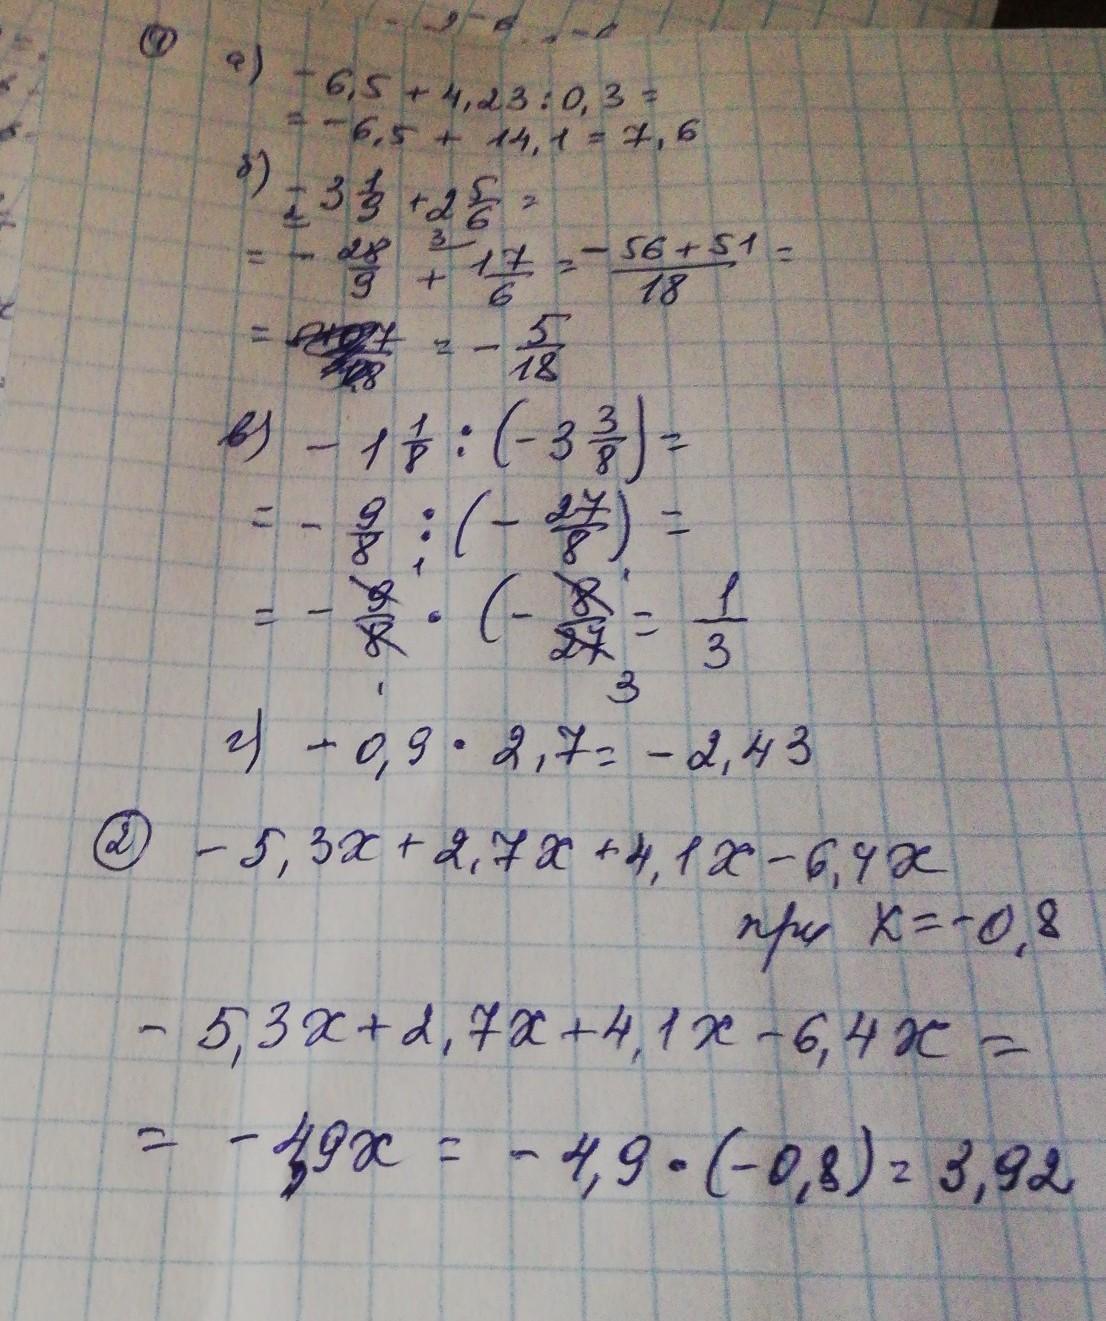 ① а) - 6,5 + 4,23 : 0,3 =
= - 6,5 + 14,1 = 7,6
б) - 3 1/9 + 2 5/6 =
= - 28/9 + 17/6 = (- 56 + 51)/18 =
= = - 5/18
в) - 1 1/8 : (- 3 3/8) =
= - 9/8 : (- 27/8) =
= - 9/8 · (- 8/27 = 1/3
г) - 0,9 · 2,7 = - 2,43
② - 5,3x + 2,7x + 4,1x - 6,4x
при x = -0,8
- 5,3x + 2,7x + 4,1x - 6,4x =
= - 4,9x = - 4,9 · (-0,8) = 3,92